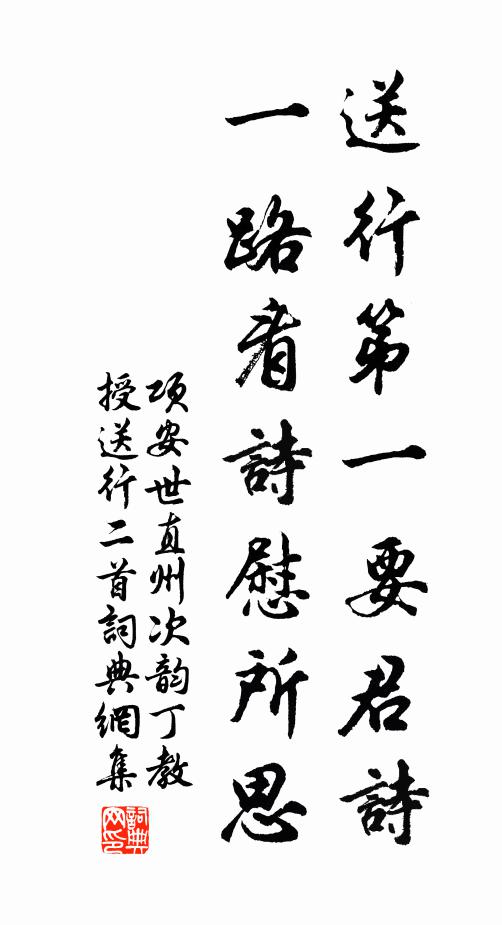 送行第一要君詩
一路看詩慰所思
項安世直州次韵丁教
授送行二首詞典網集
詞典
网印